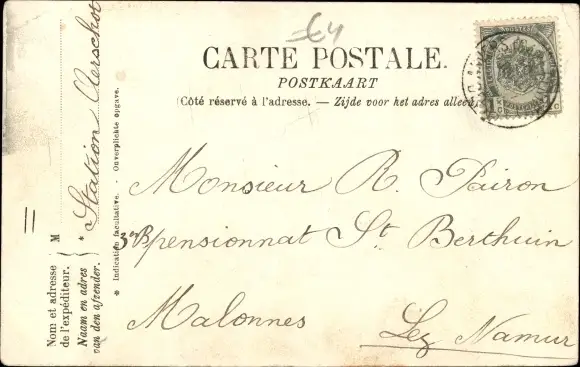 €4
CARTE POSTALE.
POSTKAART
(Côté réservé à l'adresse. — Zijde voor het adres alleen
Monsieur R. Pairon
pensionnat St. Berthuin
Malonnes
Lez Namur
Nom et adresse de l'expéditeur.
Naam en adres van den afzender.
M
* Station Aerschot
* Indication facultative. - Onverplichte opgave.